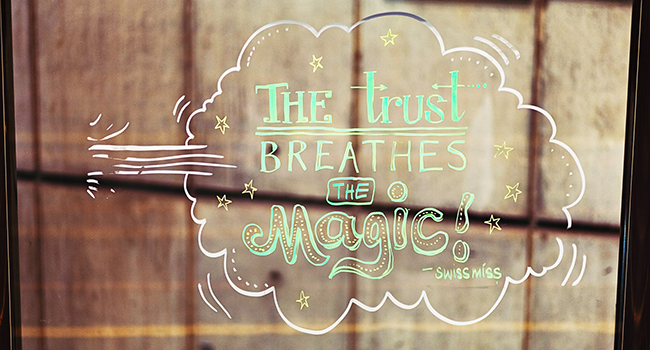 THE trust
BREATHES
THE
Magic!
- SWISSMISS